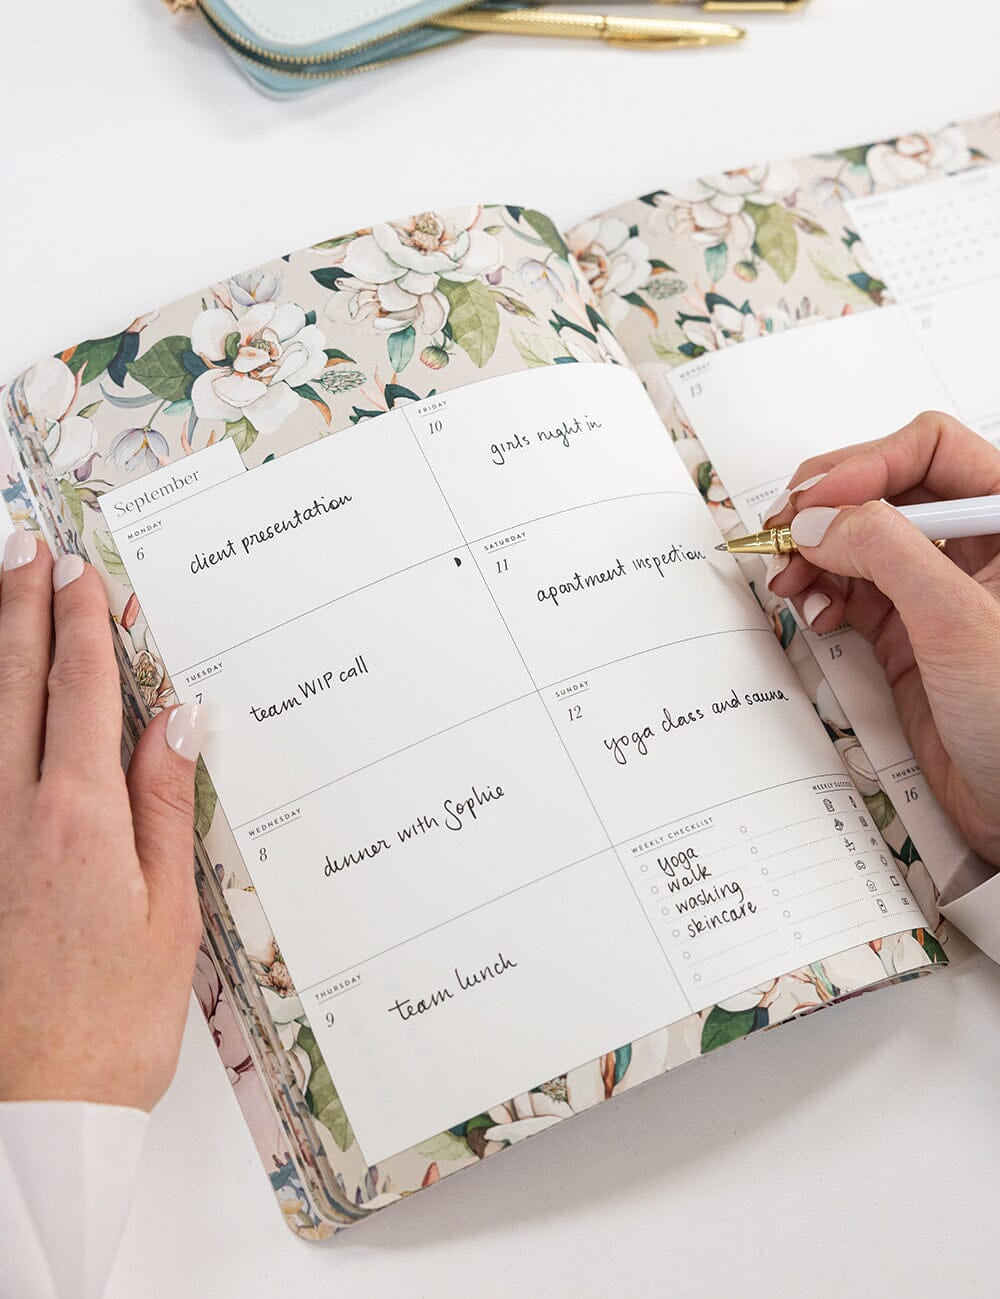 September
MONDAY
6
client presentation
TUESDAY
7
team WIP call
WEDNESDAY
8
dinner with Sophie
THURSDAY
9
team lunch
FRIDAY
10
girls night in
SATURDAY
11
apartment inspection
SUNDAY
12
yoga class and sauna
WEEKLY CHECKLIST
yoga
walk
washing
skincare
WEEKLY SUCCESS
MONDAY
13
TUESDAY
15
THURSD
16
17